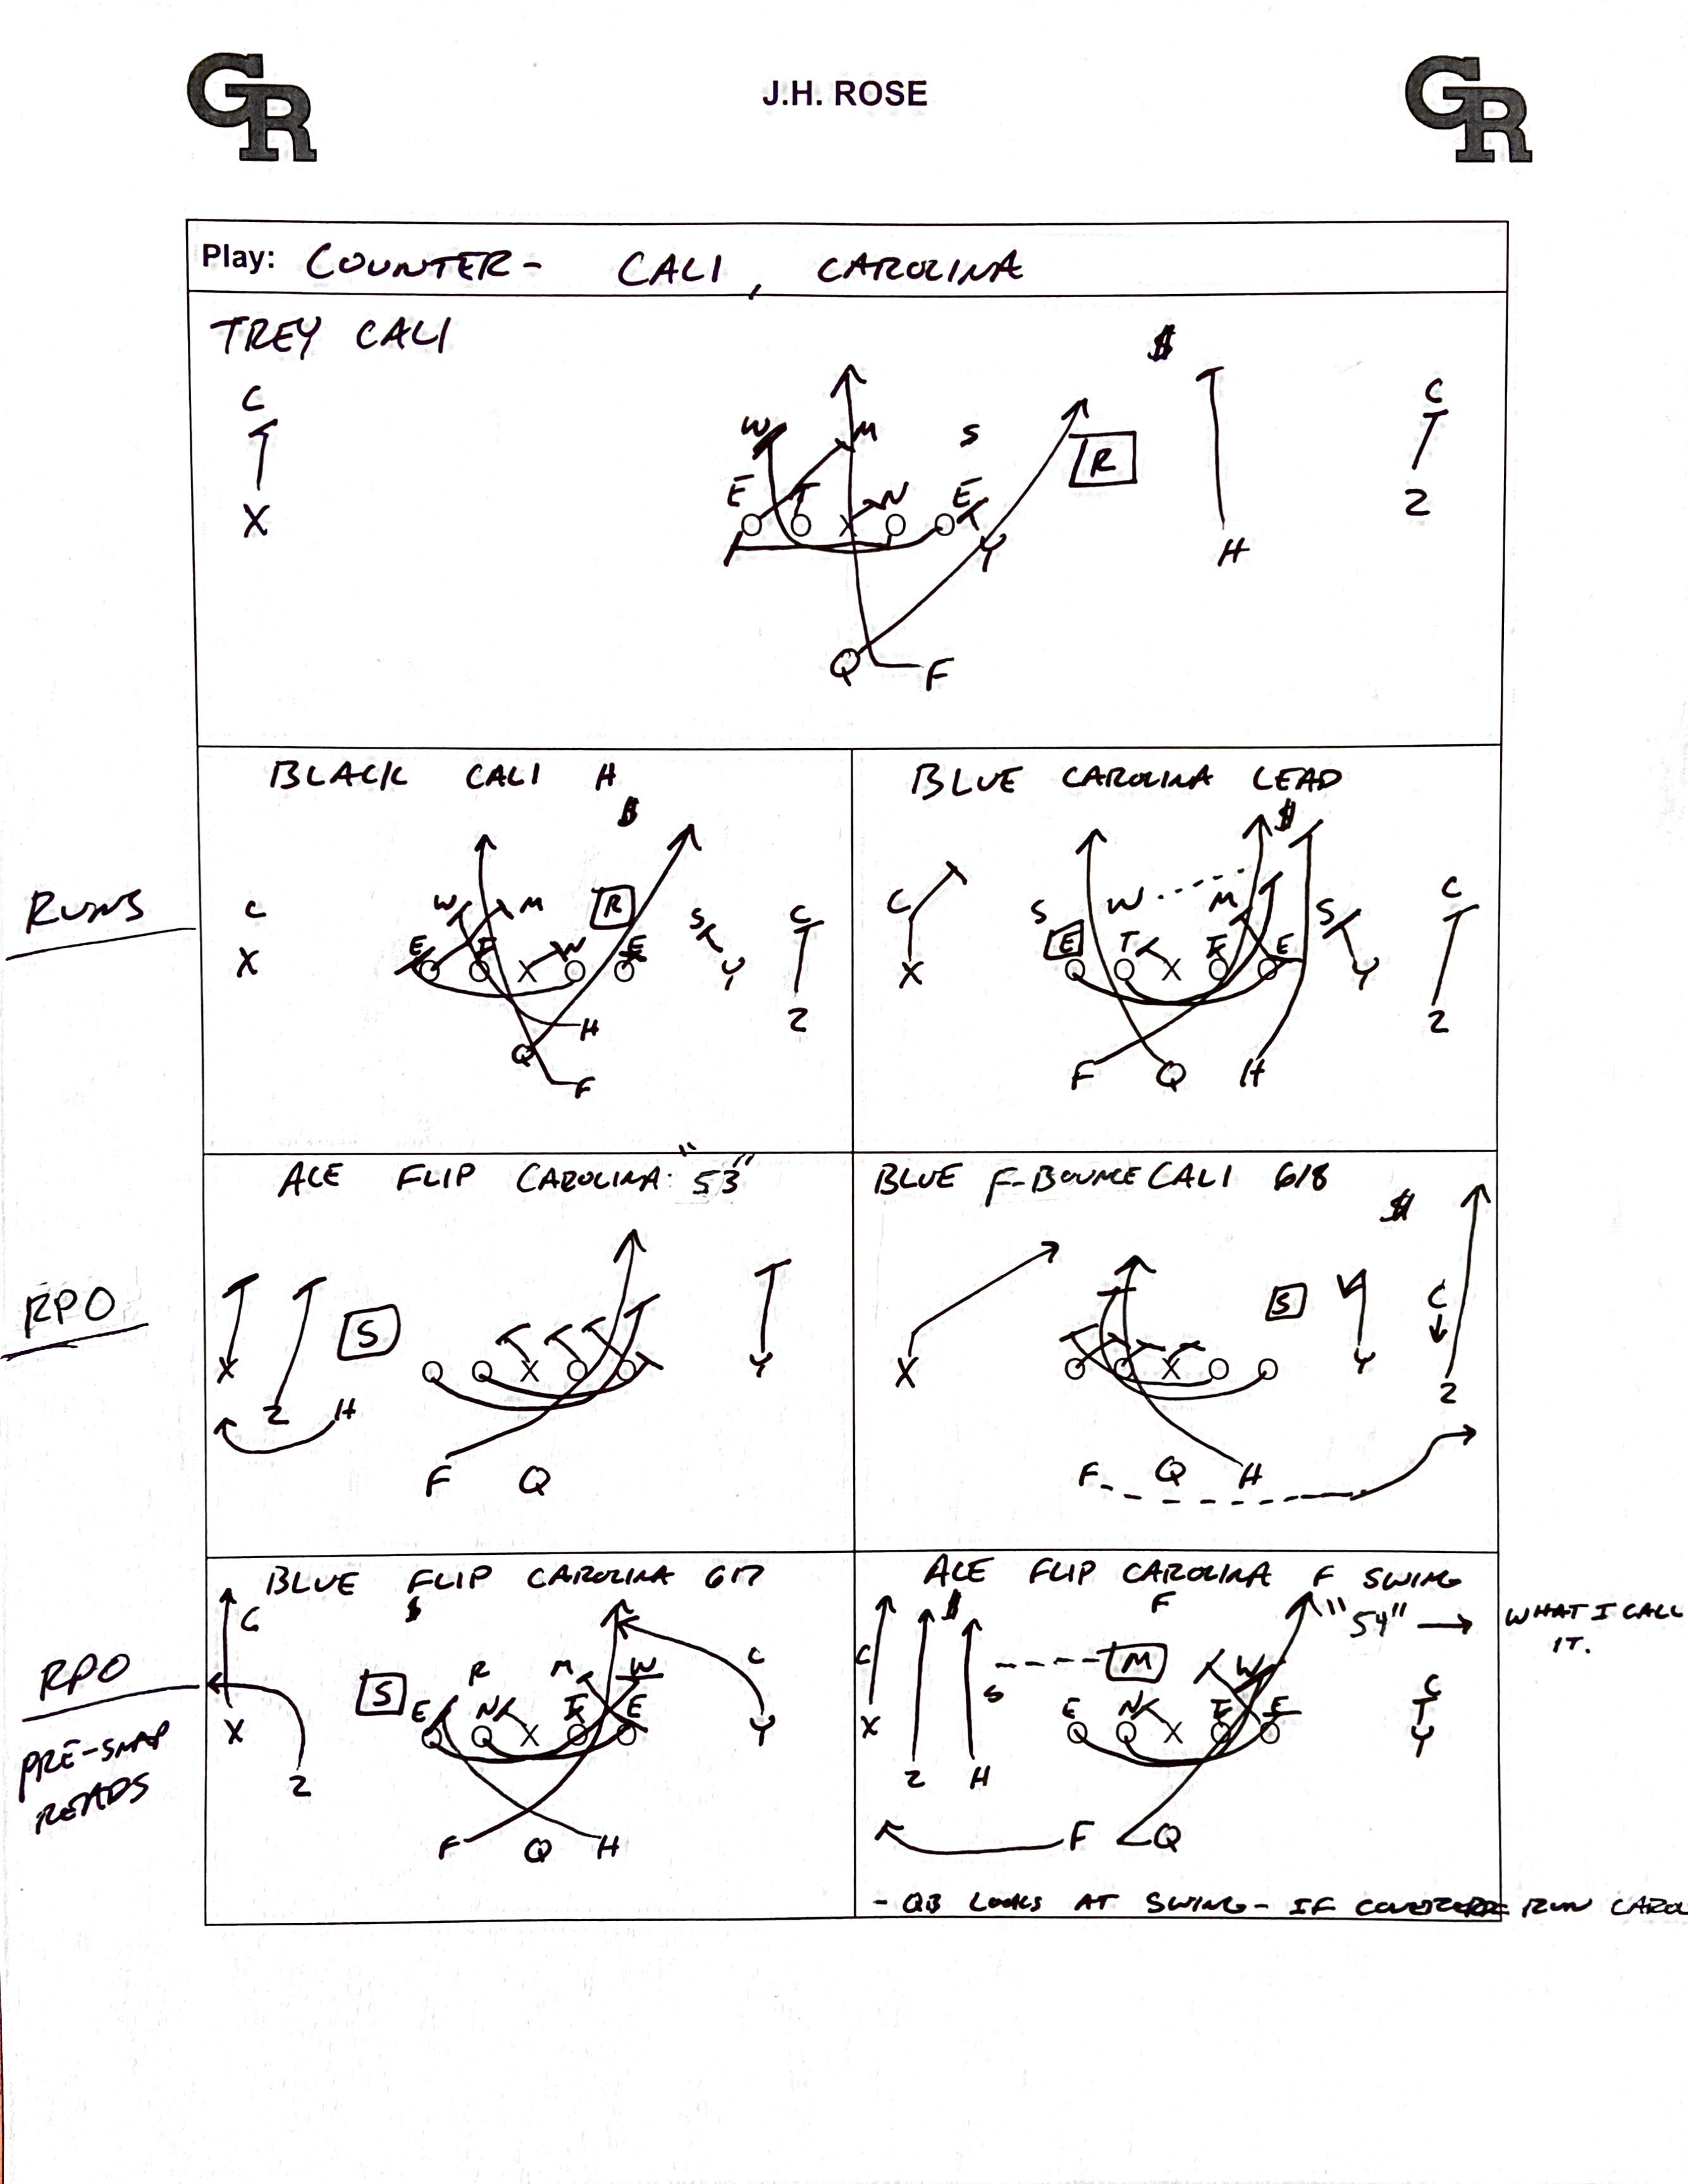 GR
J.H. ROSE
GR
Play: COUNTER - CALI, CAROLINA
TREY CALI
$
C
C
W M S
E T N E
R
X
O O X O O
2
Y
H
Q F
RUNS
BLACK CALI H
$
C
W M R S C
E N E
X
O O X O O
Y
2
H
Q
F
BLUE CAROLINA LEAD
$
C S W M S C
E T E
X
O O X O O
Y
2
F Q H
RPO
ACE FLIP CAROLINA "53"
S
X
O O X O O
Y
2 H
F Q
BLUE F-BOUNCE CALI 618
$
S C
X
O O X O O
Y
2
F Q H
RPO
PRE-SNAP
READS
BLUE FLIP CAROLINA 617
C $
R M W C
S E N E
X
O O X O O
Y
2
F Q H
ACE FLIP CAROLINA F SWING
F
"54" → WHAT I CALL
IT.
$
C M W
S
E N E C
X
O O X O O
Y
2 H
F Q
- QB LOOKS AT SWING - IF COVERED RUN CAROL